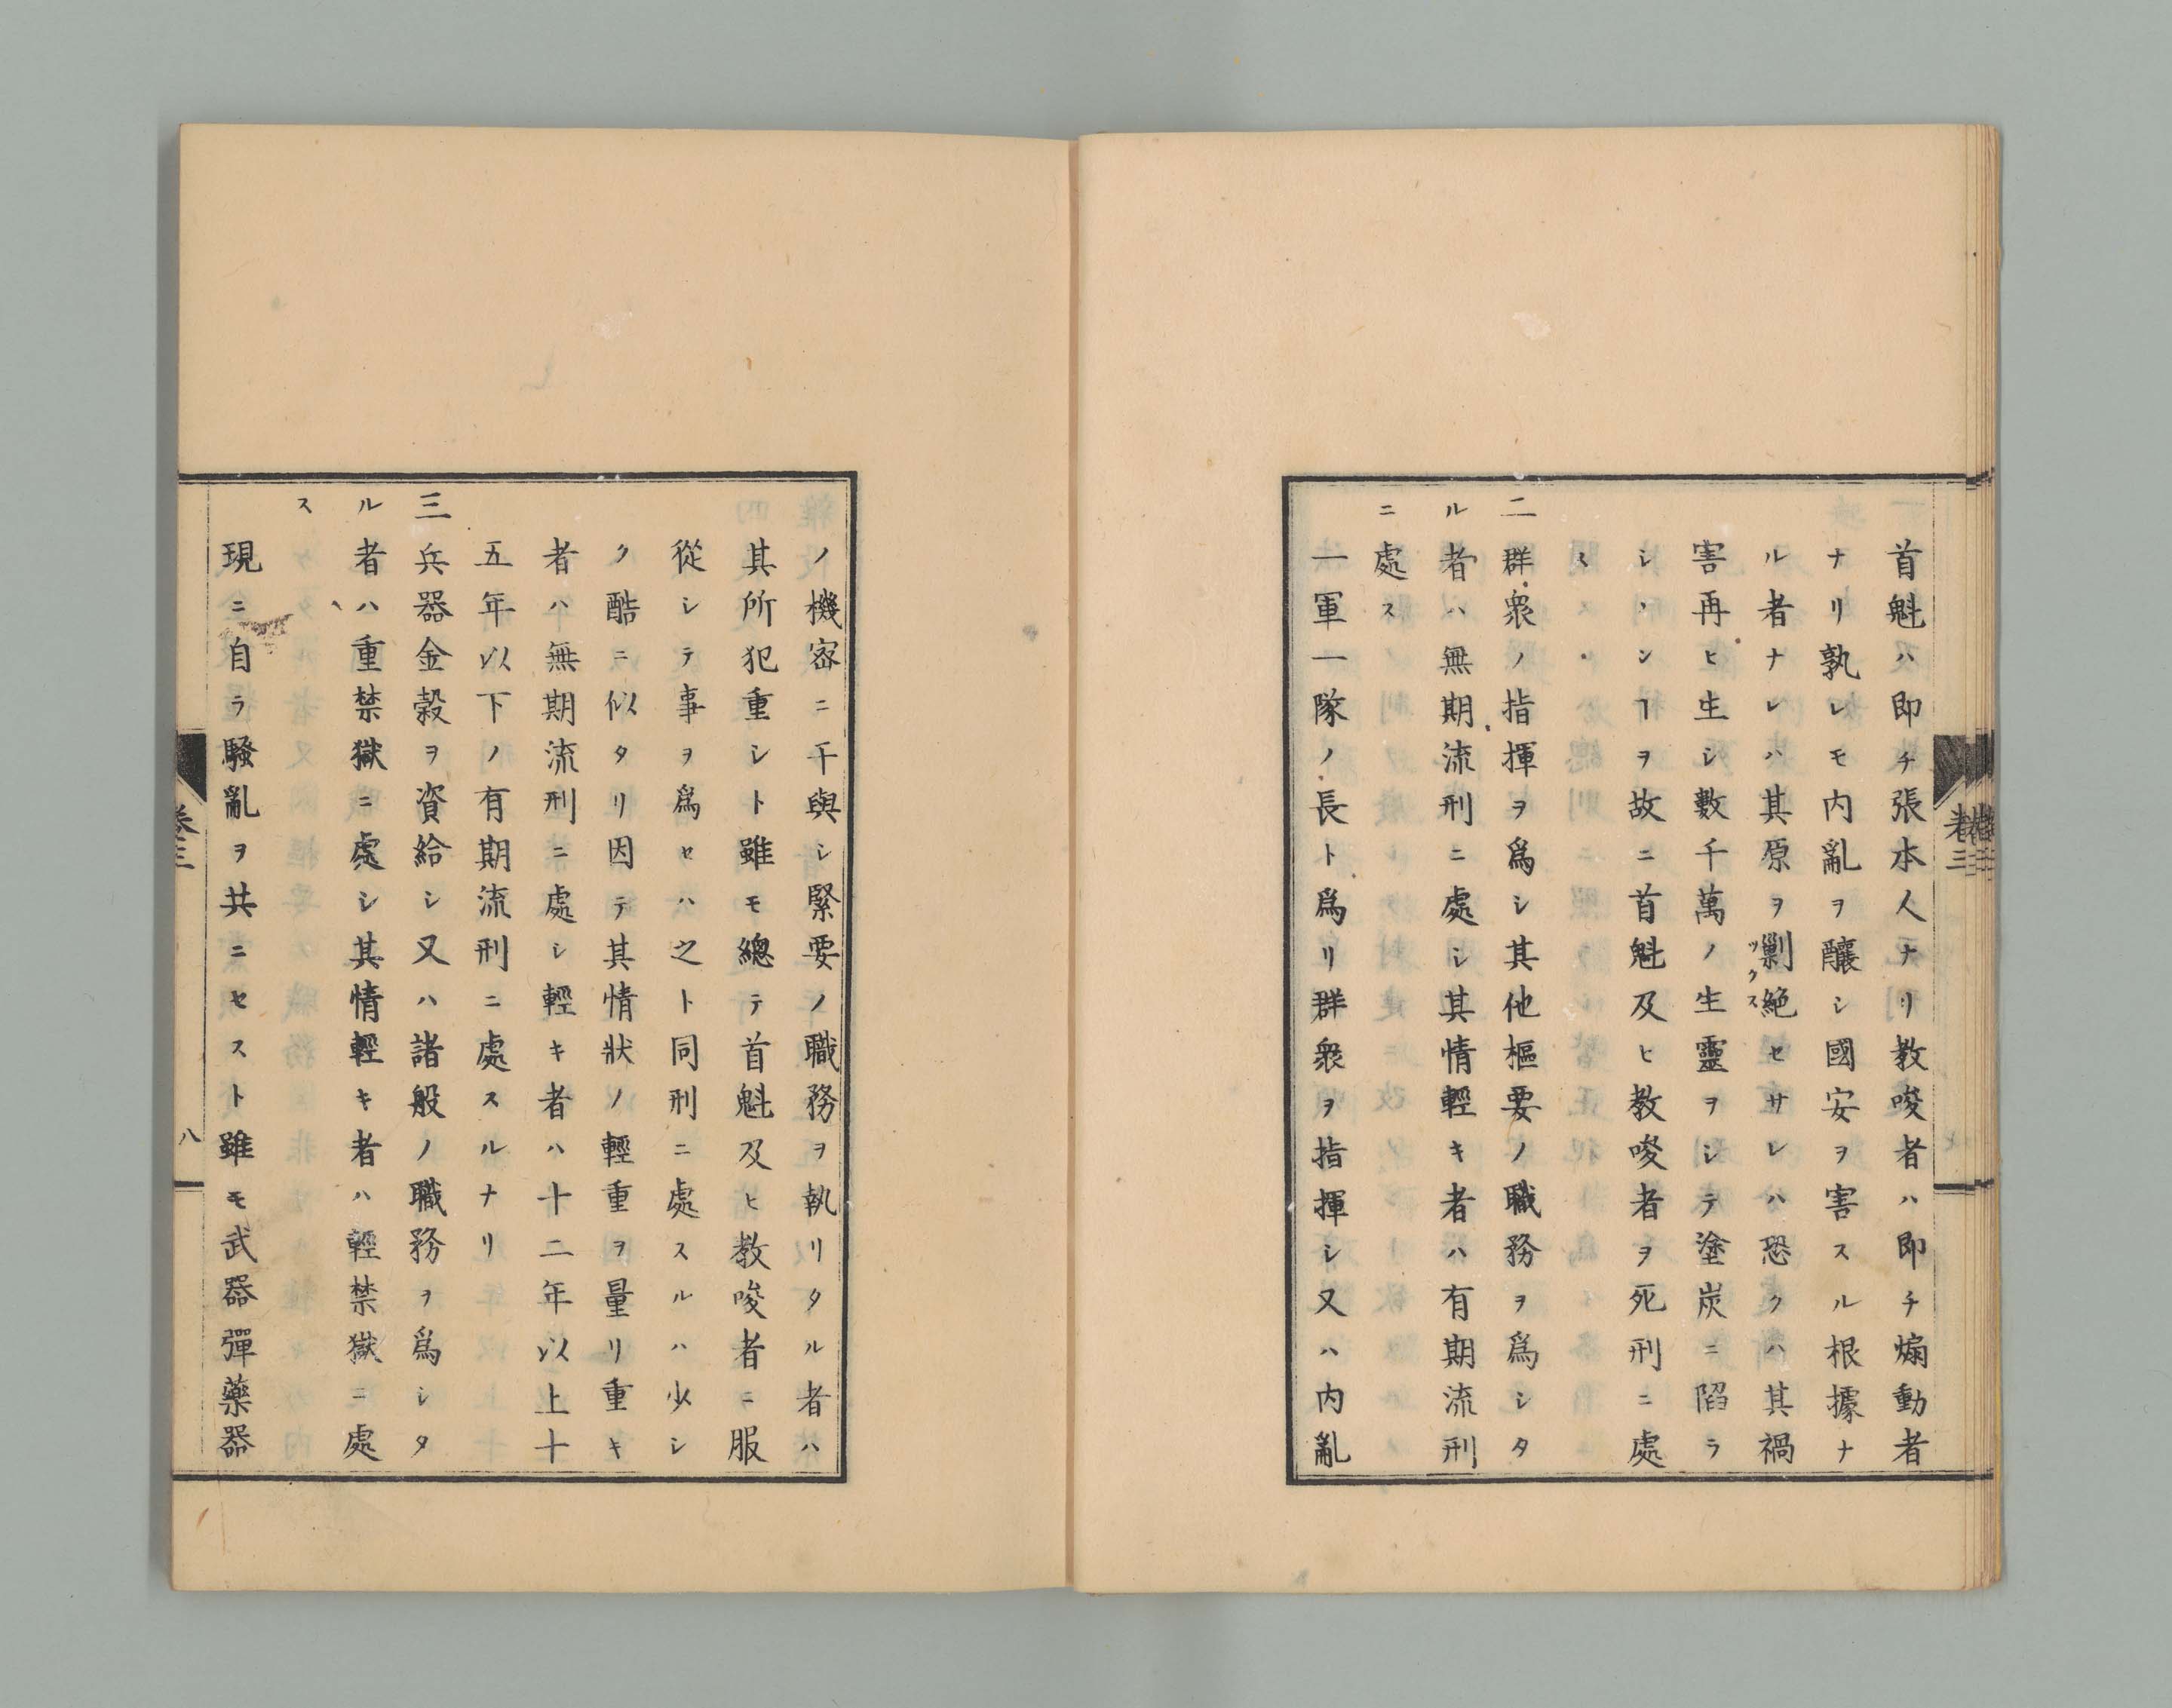 首魁ハ即チ張本人ナリ教唆者ハ即チ煽動者
ナリ孰レモ内亂ヲ釀シ國安ヲ害スル根據ナ
ル者ナレハ其原ヲ剿絶セサレハ恐クハ其禍
ツクス
害再ヒ生シ數千萬ノ生靈ヲシテ塗炭ニ陷ラ
シメンヿヲ故ニ首魁及ヒ教唆者ヲ死刑ニ處
ス
二群衆ノ指揮ヲ爲シ其他樞要ノ職務ヲ爲シタ
ル者ハ無期流刑ニ處シ其情輕キ者ハ有期流刑
ニ處ス
一軍一隊ノ長ト爲リ群衆ヲ指揮シ又ハ内亂
卷三
ノ機密ニ干與シ緊要ノ職務ヲ執リタル者ハ
其所犯重シト雖モ總テ首魁及ヒ教唆者ニ服
從シテ事ヲ爲セハ之ト同刑ニ處スルハ少シ
ク酷ニ似タリ因テ其情狀ノ輕重ヲ量リ重キ
者ハ無期流刑ニ處シ輕キ者ハ十二年以上十
五年以下ノ有期流刑ニ處スルナリ
三兵器金穀ヲ資給シ又ハ諸般ノ職務ヲ爲シタ
ル者ハ重禁獄ニ處シ其情輕キ者ハ輕禁獄ニ處
ス
現ニ自ラ騷亂ヲ共ニセスト雖モ武器彈藥器
卷三
八